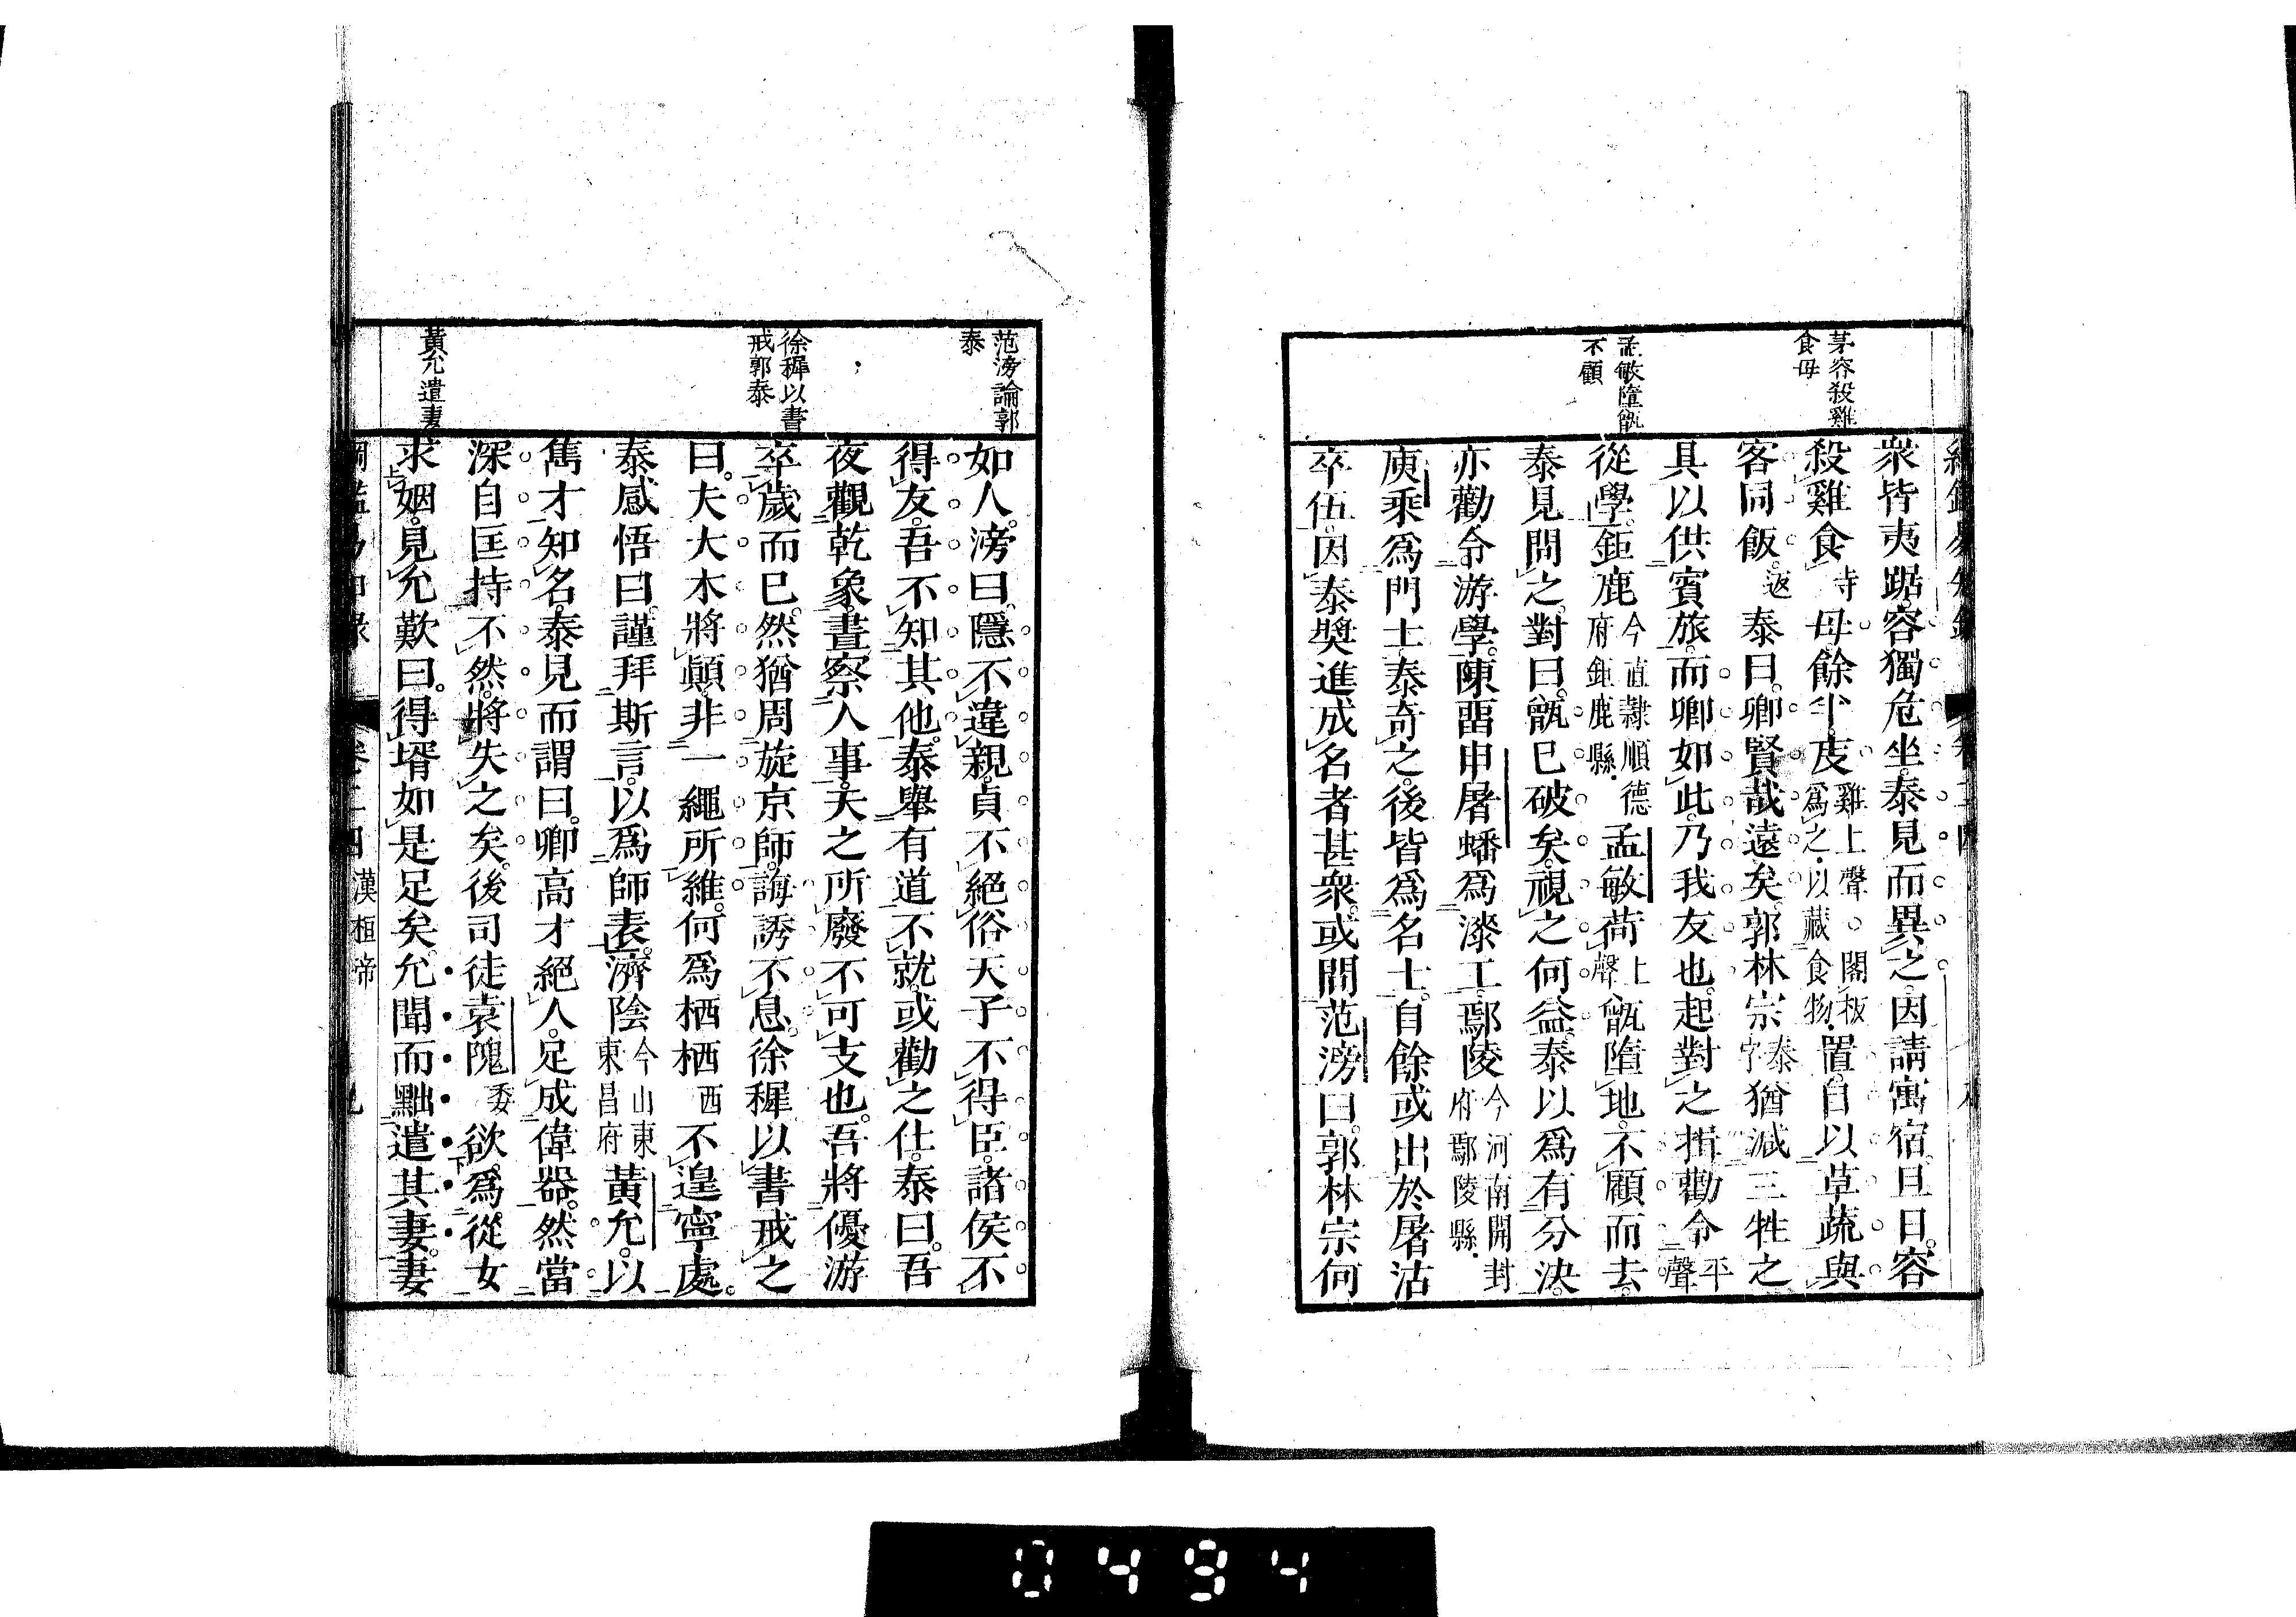 茅容殺雞
食母
孟敏墮甑
不顧
眾皆夷踞。容獨危坐。泰見而異之。因請寓宿。旦日。容
殺雞食寺母。餘半。庋雞上聲。閣板爲之。以藏食物。置。自以草蔬與
客同飯。返泰曰。卿賢哉遠矣。郭林宗泰字猶減三牲之
具以供賓旅。而卿如此。乃我友也。起對之揖。勸令平聲
從學。鉅鹿今直隸順德府鉅鹿縣。孟敏荷上聲甑墮地。不顧而去。
泰見問之。對曰。甑已破矣。視之何益。泰以爲有分決。
亦勸令游學。陳留申屠蟠爲漆工。鄢陵今河南開封府鄢陵縣。
庾乘爲門士。泰奇之。後皆爲名士。自餘或出於屠沽
卒伍。因泰奬進成名者甚衆。或問范滂曰。郭林宗何
范滂論郭
泰
徐穉以書
戒郭泰
黃允遣妻
如人。滂曰。隱不違親。貞不絕俗。天子不得臣。諸侯不
得友。吾不知其他。泰舉有道不就。或勸之仕。泰曰。吾
夜觀乾象。晝察人事。天之所廢。不可支也。吾將優游
卒歲而已。然猶周旋京師。誨誘不息。徐穉以書戒之
曰。夫大木將顛。非一繩所維。何爲栖栖西不遑寧處。
泰感悟曰。謹拜斯言。以爲師表。濟陰今山東東昌府黃允。以
雋才知名。泰見而謂曰。卿高才絕人。足成偉器。然當
深自匡持。不然。將失之矣。後司徒袁隗委欲爲從女
求姻。見允歎曰。得壻如是足矣。允聞而黜遣其妻。妻
卷二四 漢桓帝 九